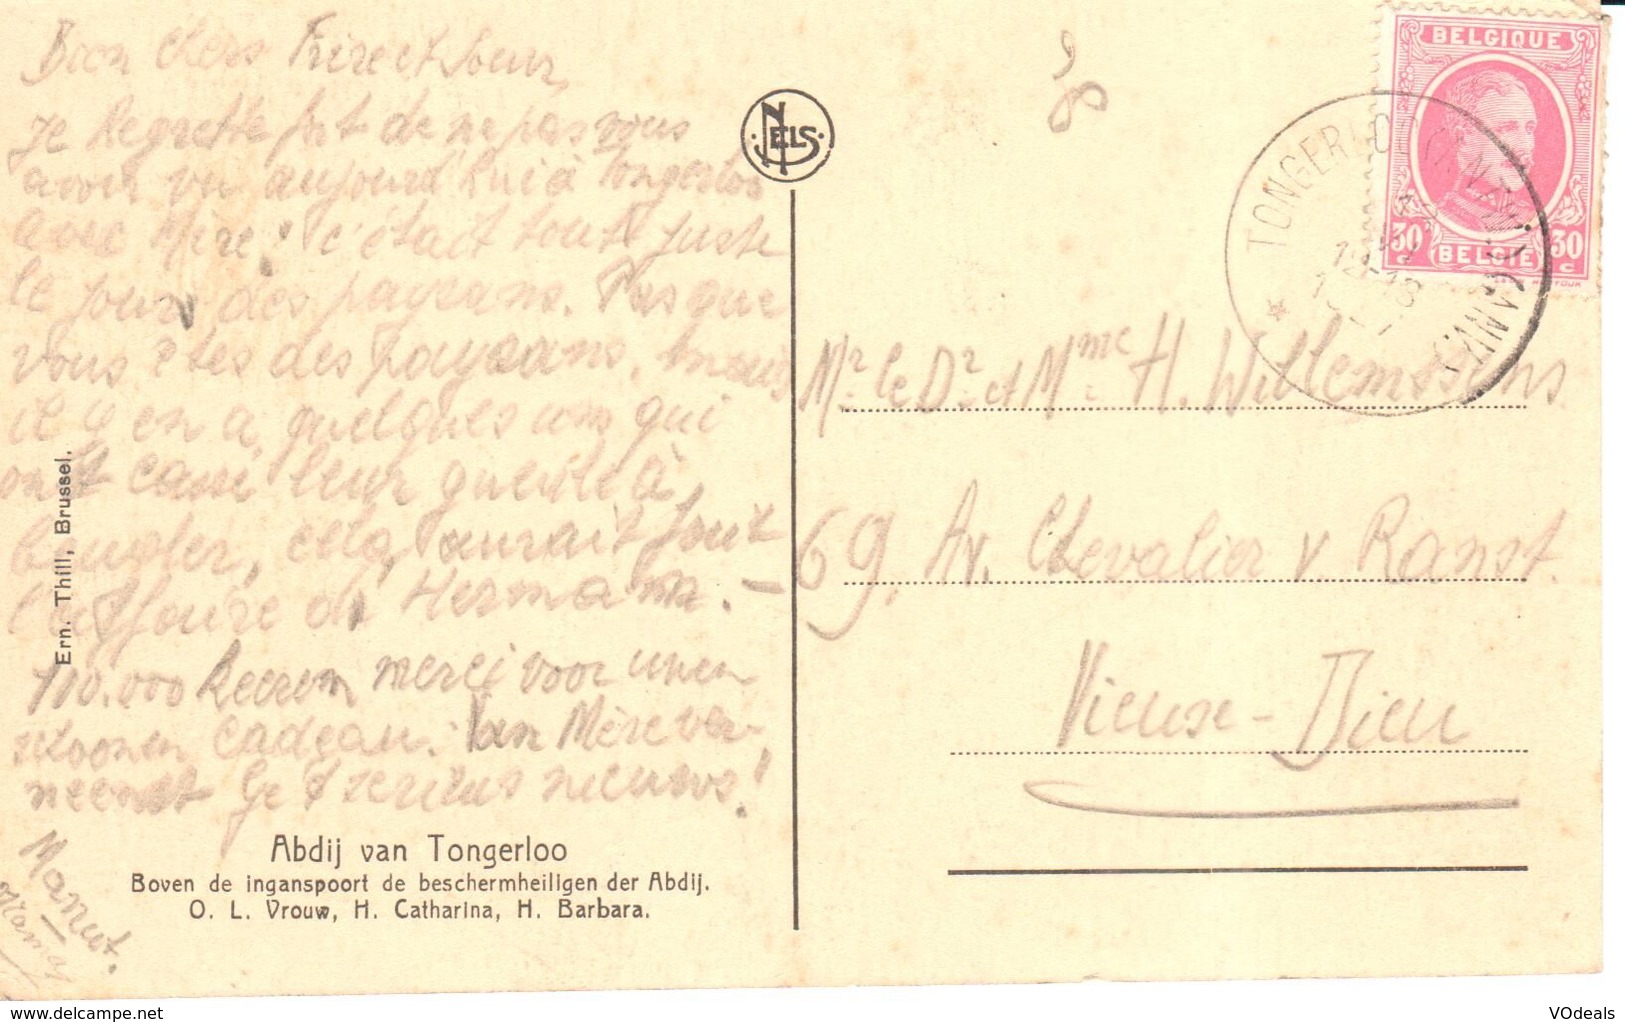 Bien chers Frère et Soeur,
je regrette fort de ne pas vous
avoir vu aujourd'hui à Tongerloo
avec Mère! c'était tout juste
le jour des paysans. Pas que
vous êtes des paysans, mais
il y en a quelques uns qui
ont cassé leur gueule à
, cela aurait fait
l'affaire de Hermann. —
100.000 keeren merci voor uwen
schoonen cadeau. Van Mère ver-
neemt ge 't serieus nieuws!
NELS
BELGIQUE
30 c BELGIE 30 c
TONGERLOO
Mr. le Dr. et Mme H. Willemssens
69, Av. Chevalier v Ranst.
Vieux-Dieu
Ern. Thill, Brussel.
Abdij van Tongerloo
Boven de inganspoort de beschermheiligen der Abdij.
O. L. Vrouw, H. Catharina, H. Barbara.
delcampe.net
VOdeals